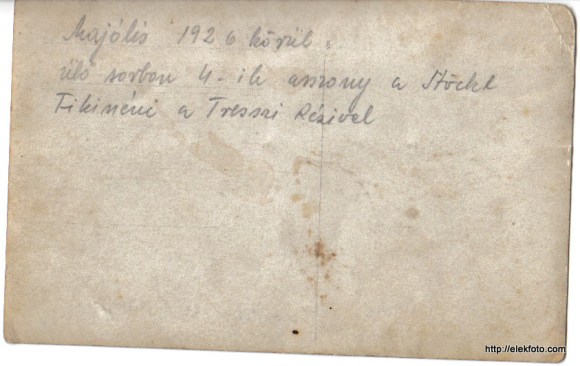 Majális 1926 körül.
ülő sorban 4.-ik asszony a Stöckl
Fikinéni a Tresszi Rézivel
http://elekfoto.com